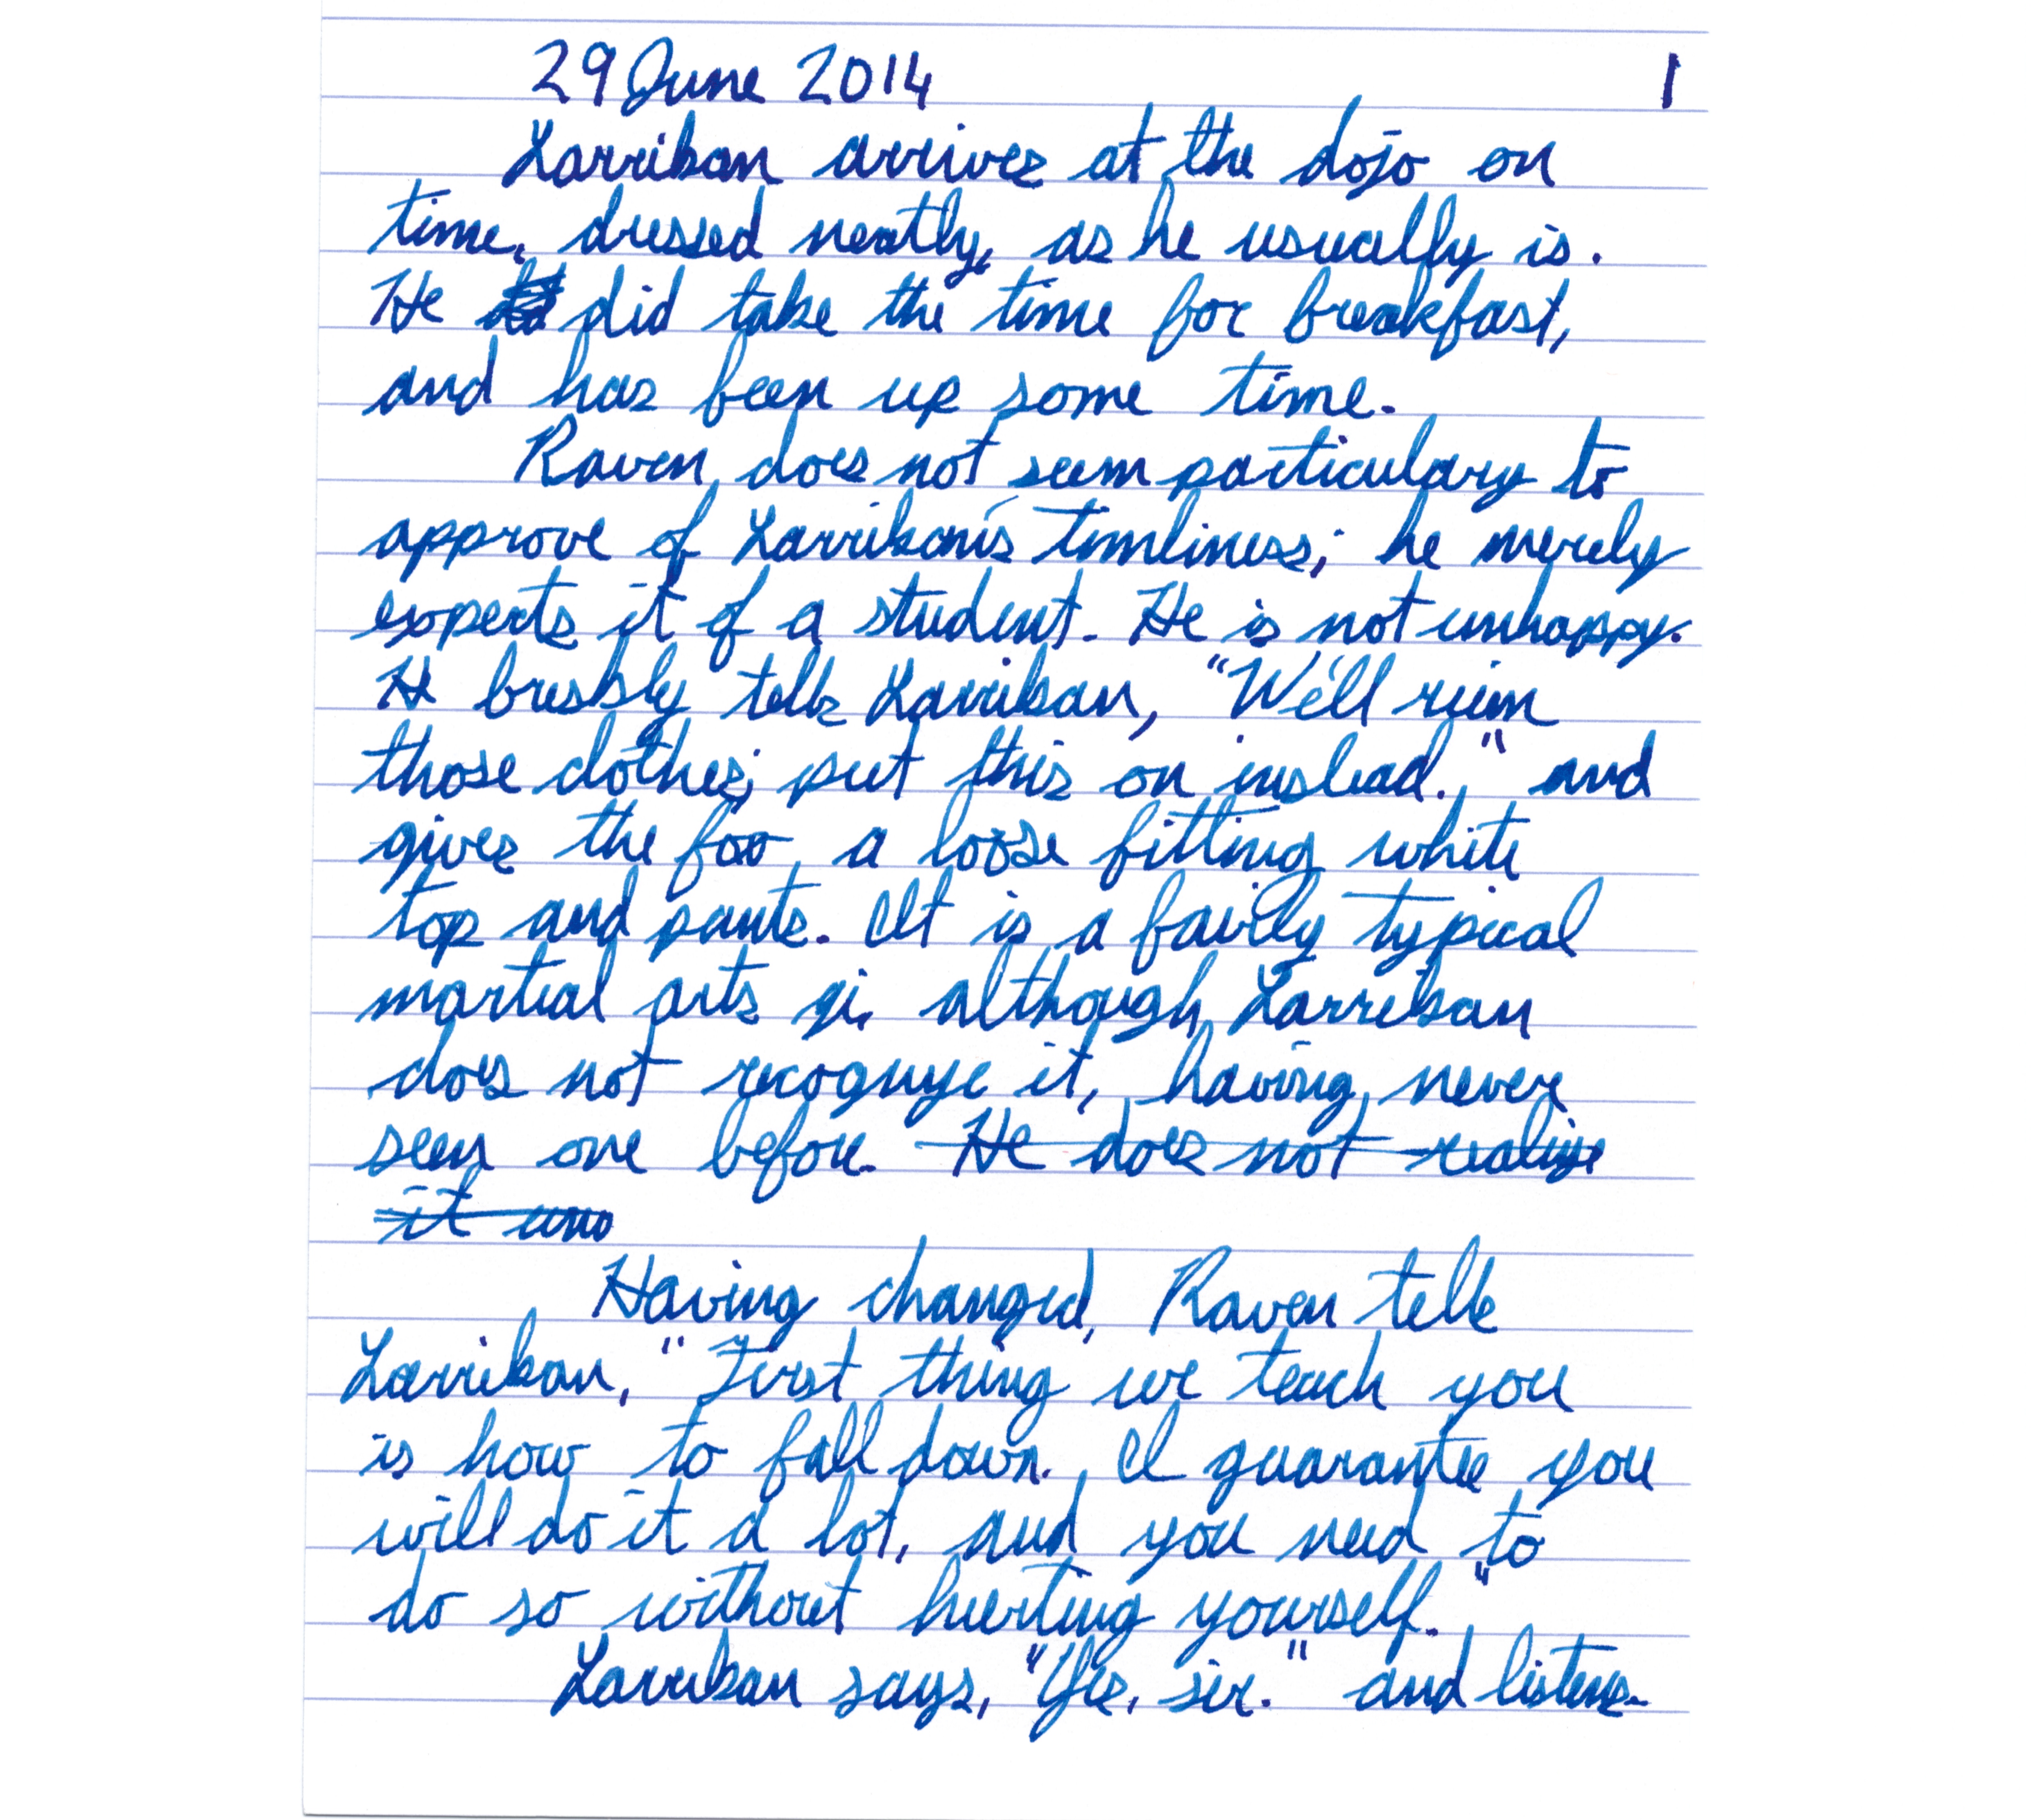 29 June 2014 1
Larrikan arrives at the dojo on
time, dressed neatly, as he usually is.
He did take the time for breakfast,
and has been up some time.
Raven does not seem particulary to
approve of Larrikan's timliness; he merely
expects it of a student. He is not unhappy.
He briskly tells Larrikan, "We'll ruin
those clothes; put this on instead." and
gives the fox a loose fitting white
top and pants. It is a fairly typical
martial arts gi, although Larrikan
does not recognize it, having never
seen one before. He does not realize
it
Having changed, Raven tells
Larrikan, "First thing we teach you
is how to fall down. I guarantee you
will do it a lot, and you need to
do so without hurting yourself."
Larrikan says, "Yes, sir." and listens.